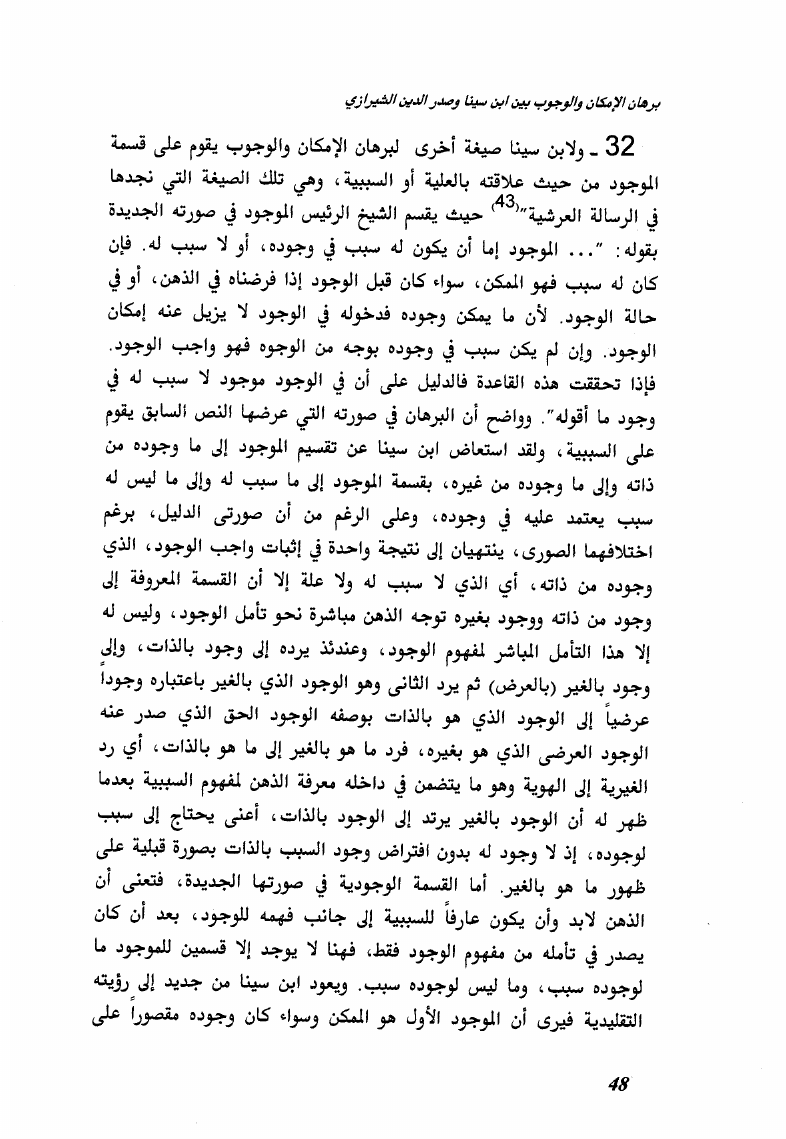 برهان الإمكان والوجوب بين ابن سينا وصدر الدين الشيرازي
32 ـ ولابن سينا صيغة أخرى لبرهان الإمكان والوجوب يقوم على قسمة
الموجود من حيث علاقته بالعلية أو السببية، وهي تلك الصيغة التي نجدها
في الرسالة العرشية"(43) حيث يقسم الشيخ الرئيس الموجود في صورته الجديدة
بقوله: "... الموجود إما أن يكون له سبب في وجوده، أو لا سبب له. فإن
كان له سبب فهو الممكن، سواء كان قبل الوجود إذا فرضناه في الذهن، أو في
حالة الوجود. لأن ما يمكن وجوده فدخوله في الوجود لا يزيل عنه إمكان
الوجود. وإن لم يكن سبب في وجوده بوجه من الوجوه فهو واجب الوجود.
فإذا تحققت هذه القاعدة فالدليل على أن في الوجود موجود لا سبب له في
وجود ما أقوله". وواضح أن البرهان في صورته التي عرضها النص السابق يقوم
على السببية، ولقد استعاض ابن سينا عن تقسيم الموجود إلى ما وجوده من
ذاته وإلى ما وجوده من غيره، بقسمة الموجود إلى ما سبب له وإلى ما ليس له
سبب يعتمد عليه في وجوده، وعلى الرغم من أن صورتى الدليل، برغم
اختلافهما الصورى، ينتهيان إلى نتيجة واحدة في إثبات واجب الوجود، الذي
وجوده من ذاته، أي الذي لا سبب له ولا علة إلا أن القسمة المعروفة إلى
وجود من ذاته ووجود بغيره توجه الذهن مباشرة نحو تأمل الوجود، وليس له
إلا هذا التأمل المباشر لمفهوم الوجود، وعندئذ يرده إلى وجود بالذات، وإلى
وجود بالغير (بالعرض) ثم يرد الثانى وهو الوجود الذي بالغير باعتباره وجوداً
عرضياً إلى الوجود الذي هو بالذات بوصفه الوجود الحق الذي صدر عنه
الوجود العرضى الذي هو بغيره، فرد ما هو بالغير إلى ما هو بالذات، أي رد
الغيرية إلى الهوية وهو ما يتضمن في داخله معرفة الذهن لمفهوم السببية بعدما
ظهر له أن الوجود بالغير يرتد إلى الوجود بالذات، أعنى يحتاج إلى سبب
لوجوده، إذ لا وجود له بدون افتراض وجود السبب بالذات بصورة قبلية على
ظهور ما هو بالغير. أما القسمة الوجودية في صورتها الجديدة، فتعنى أن
الذهن لابد وأن يكون عارفاً للسببية إلى جانب فهمه للوجود، بعد أن كان
يصدر في تأمله من مفهوم الوجود فقط، فهنا لا يوجد إلا قسمين للموجود ما
لوجوده سبب، وما ليس لوجوده سبب. ويعود ابن سينا من جديد إلى رؤيته
التقليدية فيرى أن الموجود الأول هو الممكن وسواء كان وجوده مقصوراً على
48